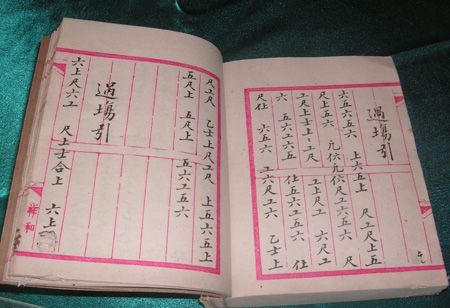 過塲引
六五六五六 上六五上 尺工尺上五
尺上五六 凢伬六伬尺工六五六 尺
工尺上尺工 六尺工
六 五六工五六 仕五六工五六 仕
尺仕 六五六 工六尺工六 乙士上
尺工尺 乙士上尺工尺 上五六五上
五尺上 五尺上 五六工五六
過塲引
六上尺六工 尺上士合上 六上
祥和